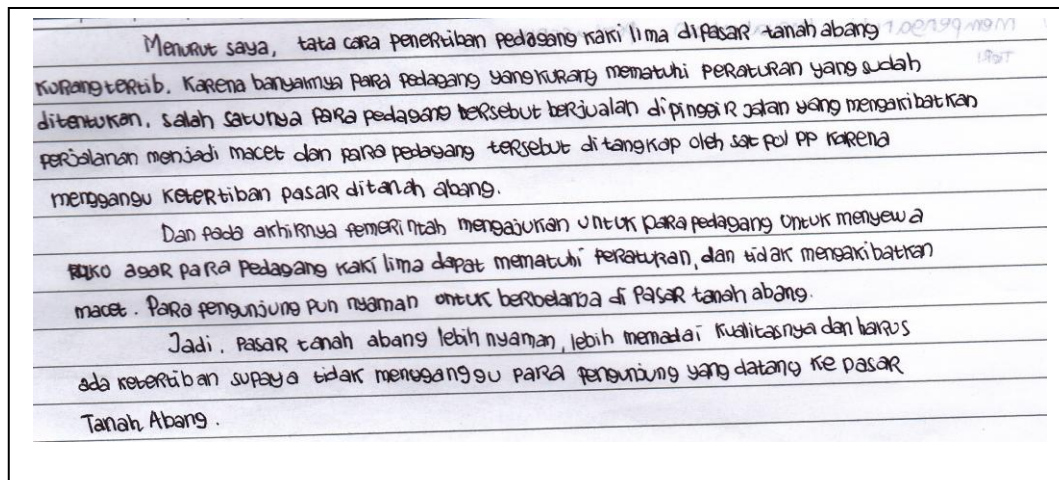 Menurut saya, tata cara penertiban pedagang kaki lima dipasar tanah abang
kurang tertib. Karena banyaknya para pedagang yang kurang mematuhi peraturan yang sudah
ditentukan, salah satunya para pedagang tersebut berjualan dipinggir jalan yang mengakibatkan
perjalanan menjadi macet dan para pedagang tersebut ditangkap oleh sat pol PP karena
menggangu ketertiban pasar ditanah abang.
Dan pada akhirnya pemerintah mengajukan untuk para pedagang untuk menyewa
ruko agar para pedagang kaki lima dapat mematuhi peraturan, dan tidak mengakibatkan
macet. Para pengunjung pun nyaman untuk berbelanja di Pasar tanah abang.
Jadi. Pasar tanah abang lebih nyaman, lebih memadai kualitasnya dan harus
ada ketertiban supaya tidak mengganggu para pengunjung yang datang ke pasar
Tanah Abang.